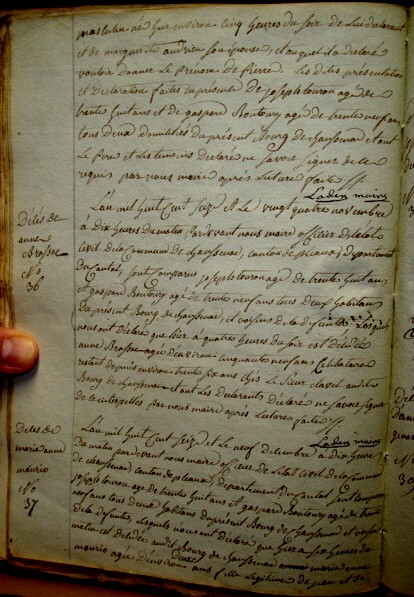 masculin né hier environ cinq heures du soir de lui declarant
et de marguerite andrieu son epouse, et auquel il a declaré
vouloir donner le Prenom de Pierre. Les dites presentation
et Declaration faites en presence de joseph touron agé de
trente huit ans et de gaspard Boutoury agé de trente neuf ans
tous deux domiciliés du présent Bourg de Chaussenac et ont
Le Pere et Les temoins declaré ne savoir signer de ce
requis par nous maire après Lecture faite
Laden maire
Délés de
anne
Brosse
N°
36
L'an mil huit Cent seize et Le vingt quatre novembre
à Dix heures du matin, Pardevant nous maire officier de L'etat
civil de la Commune de Chaussenac, canton de pleaux, Departement
du Cantal, sont comparus joseph touron agé de trente huit ans
et gaspard Boutoury agé de trente neuf ans tous deux habitans
du présent Bourg de Chaussenac, et voisins de la defunte, Lesquels
nous ont Declaré que hier à quatre heures du soir est décédée
anne Brosse agée d'environ cinquante neuf ans Celibataire
restant depuis environ trente six ans chés Le sieur clavel audit
Bourg de chaussenac et ont Les Declarants Déclaré ne savoir signer
de ce interpellés par nous maire après Lecture faite
Laden maire
Délés de
marie anne
maurio
N°
37
L'an mil huit Cent seize et Le neuf décembre à Dix heures
du matin pardevant nous maire officier de L'etat Civil de la Commune
de chaussenac, canton de pleaux, departement du Cantal sont comparus
joseph touron agé de trente huit ans et gaspard Boutoury agé de trente
neuf ans tous deux habitans du présent Bourg de Chaussenac et voisins
de la defunte, Lesquels nous ont declaré que hier a six heures du
matin est decedée audit Bourg de chaussenac marie anne
maurio agée d'environ ans fille Legitime de jean et de